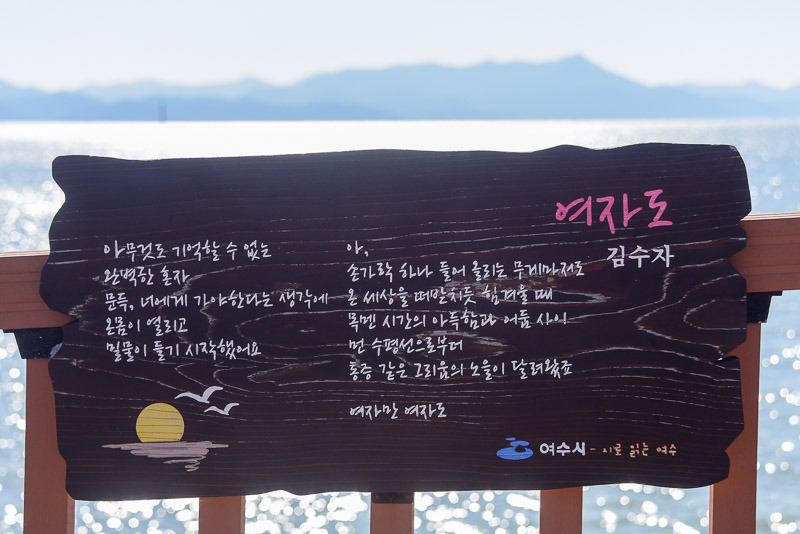 여자도
김수자
아,
손가락 하나 들어 올리는 무게마저도
온 세상을 떠받치듯 힘겨울 때
목멘 시간의 아득함과 어둠 사이
먼 수평선으로부터
통증 같은 그리움의 노을이 달려왔죠
여자만 여자도
아무것도 기억할 수 없는
완벽한 혼자
문득, 너에게 가야한다는 생각에
온몸이 열리고
밀물이 들기 시작했어요
여수시 - 시로 읽는 여수